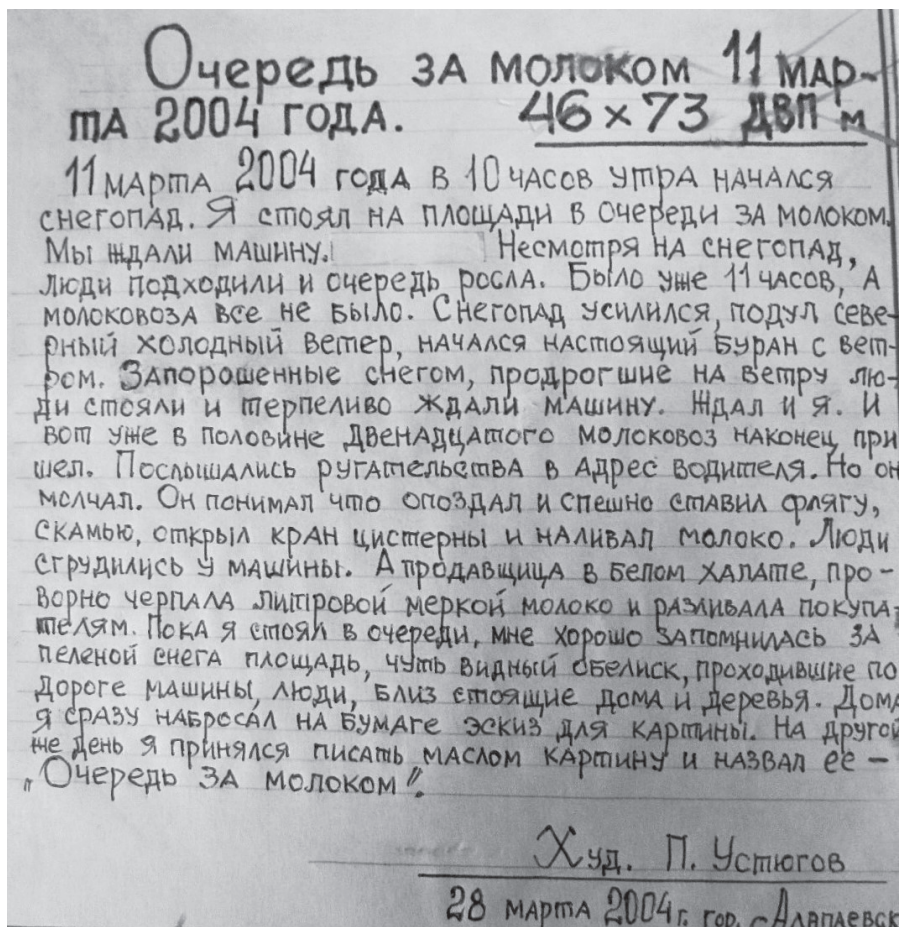 Очередь за молоком 11 мар-
та 2004 года. 46 х 73 ДВП м
11 марта 2004 года в 10 часов утра начался
снегопад. Я стоял на площади в очереди за молоком.
Мы ждали машину. Несмотря на снегопад,
люди подходили и очередь росла. Было уже 11 часов, а
молоковоза все не было. Снегопад усилился, подул севе-
рный холодный ветер, начался настоящий буран с вет-
ром. Запорошенные снегом, продрогшие на ветру лю-
ди стояли и терпеливо ждали машину. Ждал и я. И
вот уже в половине двенадцатого молоковоз наконец при
шел. Послышались ругательства в адрес водителя. Но он
молчал. Он понимал что опоздал и спешно ставил флягу,
скамью, открыл кран цистерны и наливал молоко. Люди
сгрудились у машины. А продавщица в белом халате, про-
ворно черпала литровой меркой молоко и разливала покупа-
телям. Пока я стоял в очереди, мне хорошо запомнилась за
пеленой снега площадь, чуть видный обелиск, проходившие по
дороге машины, люди, близ стоящие дома и деревья. Дома
я сразу набросал на бумаге эскиз для картины. На другой
же день я принялся писать маслом картину и назвал ее –
„Очередь за молоком".
Худ. П. Устюгов
28 марта 2004 г. гор. Алапаевск